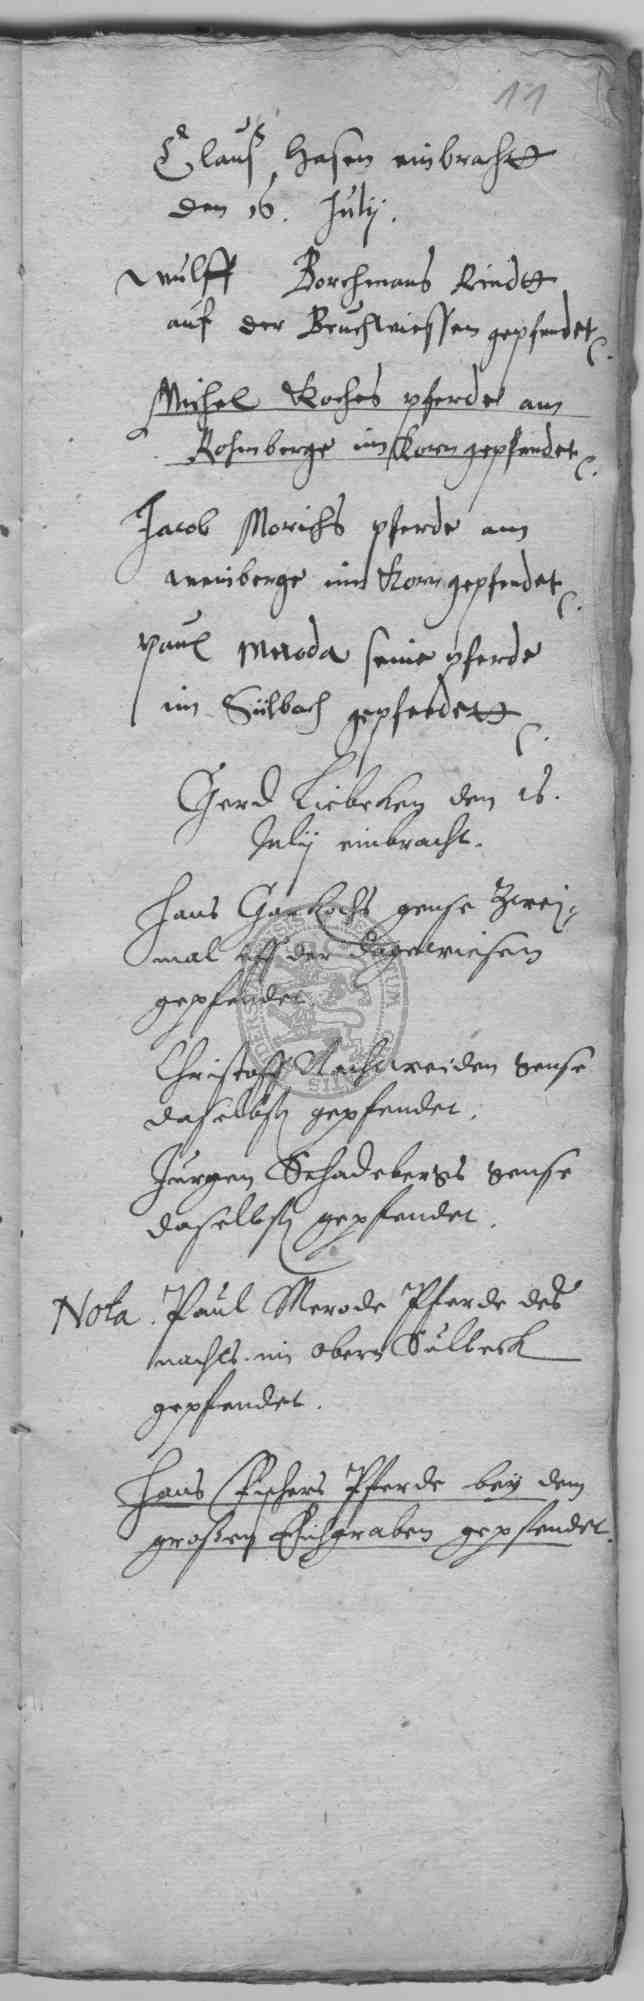 11
Clauß Hasen einbrachtt
den 16. Julij.
Wulff Borchmans Rindtt
auf der Bruchwiessen gepfendet
Michel Koches pferde am
Rohmberge im Korn gepfendet
Jacob Morichs pferde am
weinberge im Korn gepfendet
Paul Meroda seine pferde
im Sülbach gepfendett
Gerd Liebeken den 18.
Julij einbracht.
Hans Garkochs gense zwei¬
mal uff der wiesen
gepfendet.
Christoff Nachtweiden gense
daselbst gepfendet.
Jurgen Schadebergs gense
daselbst gepfendet.
Nota. Paul Merode Pferde des
nachts im obern Sulbeck
gepfendet.
Hans Fischers Pferde bey dem
großen graben gepfendet.